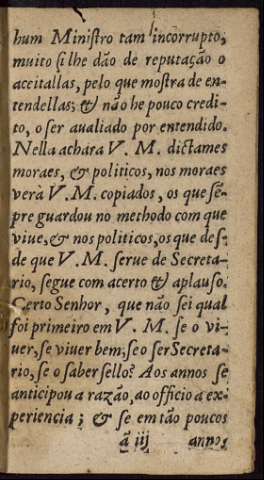 hum Ministro tam incorrupto,
muito si lhe dão de reputação o
aceitallas, pelo que mostra de en-
tendellas; & não he pouco credi-
to, o ser aualiado por entendido.
Nella achara V. M. dictames
moraes, & politicos, nos moraes
verà V. M. copiados, os que sẽ-
pre guardou no methodo com que
viue, & nos politicos, os que des-
de que V. M. serue de Secreta-
rio, segue com acerto & aplauso.
Certo Senhor, que não sei qual
foi primeiro em V. M. se o vi-
uer, se viuer bem; se o ser Secreta-
rio, se o saber sello? Aos annos se
anticipou a razão, ao officio a ex-
periencia; & se em tão poucos
ã iij annos